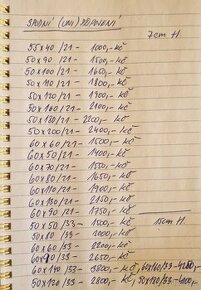 SPODNÍ (UNI) PŘIPOJENÍ 7cm H.
55x40/21 - 1000,-Kč
50x90/21 - 1500,-Kč
50x100/21 - 1650,-Kč
50x110/21 - 1800,-Kč
50x120/21 - 1900,-Kč
50x160/21 - 2100,-Kč
50x180/21 - 2200,-Kč
50x200/21 - 2400,-Kč
60x60/21 - 1500,-Kč
60x50/21 - 1400,-Kč
60x70/21 - 1550,-Kč
60x80/21 - 1650,-Kč
60x110/21 - 1900,-Kč
60x130/21 - 2150,-Kč
60x90/21 - 1750,-Kč
50x50/33 - 1500,-Kč 15cm H.
50x80/33 - 2000,-Kč
60x60/33 - 2200,-Kč
60x90/33 - 2650,-Kč
60x140/33 - 3800,-Kč, 60x160/33 - 4200,-
50x120/33 - 2800,-Kč,